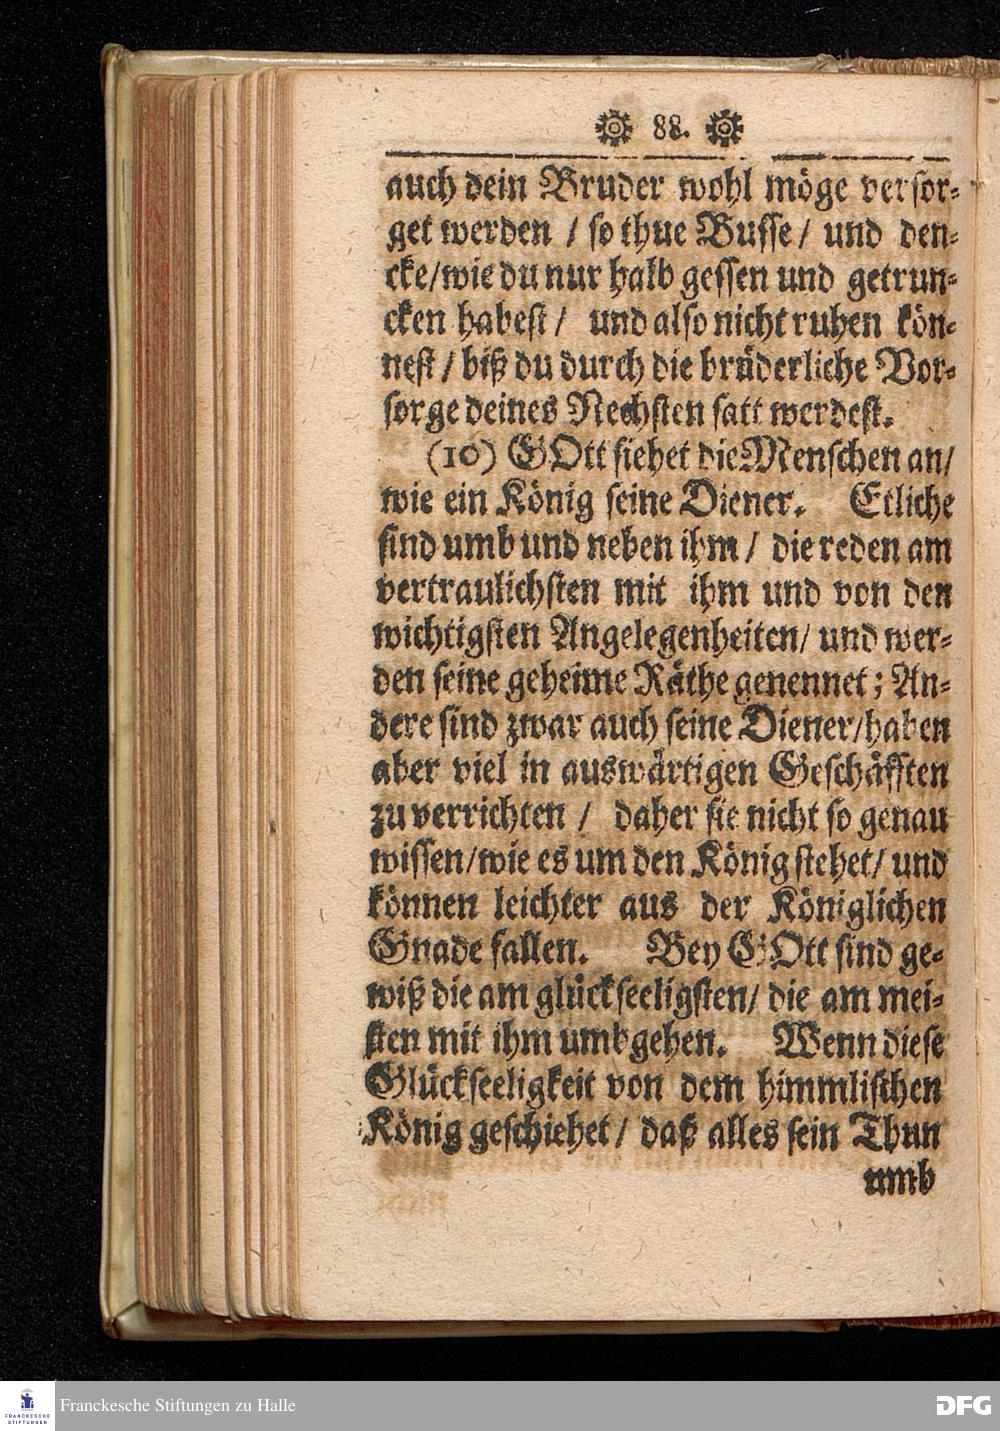 88.
auch dein Bruder wohl möge versor-
get werden / so thue Busse / und den-
cke/wie du nur halb gessen und getrun-
cken habest / und also nicht ruhen kön-
nest / biß du durch die brüderliche Vor-
sorge deines Nechsten satt werdest.
(10) GOtt siehet die Menschen an/
wie ein König seine Diener. Etliche
sind umb und neben ihm / die reden am
vertraulichsten mit ihm und von den
wichtigsten Angelegenheiten/ und wer-
den seine geheime Räthe genennet; An-
dere sind zwar auch seine Diener/haben
aber viel in auswärtigen Geschäfften
zu verrichten / daher sie nicht so genau
wissen/wie es um den König stehet/ und
können leichter aus der Königlichen
Gnade fallen. Bey GOtt sind ge-
wiß die am glückseeligsten/ die am mei-
sten mit ihm umbgehen. Wenn diese
Glückseeligkeit von dem himmlischen
König geschiehet / daß alles sein Thun
umb
FRANCKESCHE
STIFTUNGEN
Franckesche Stiftungen zu Halle
DFG